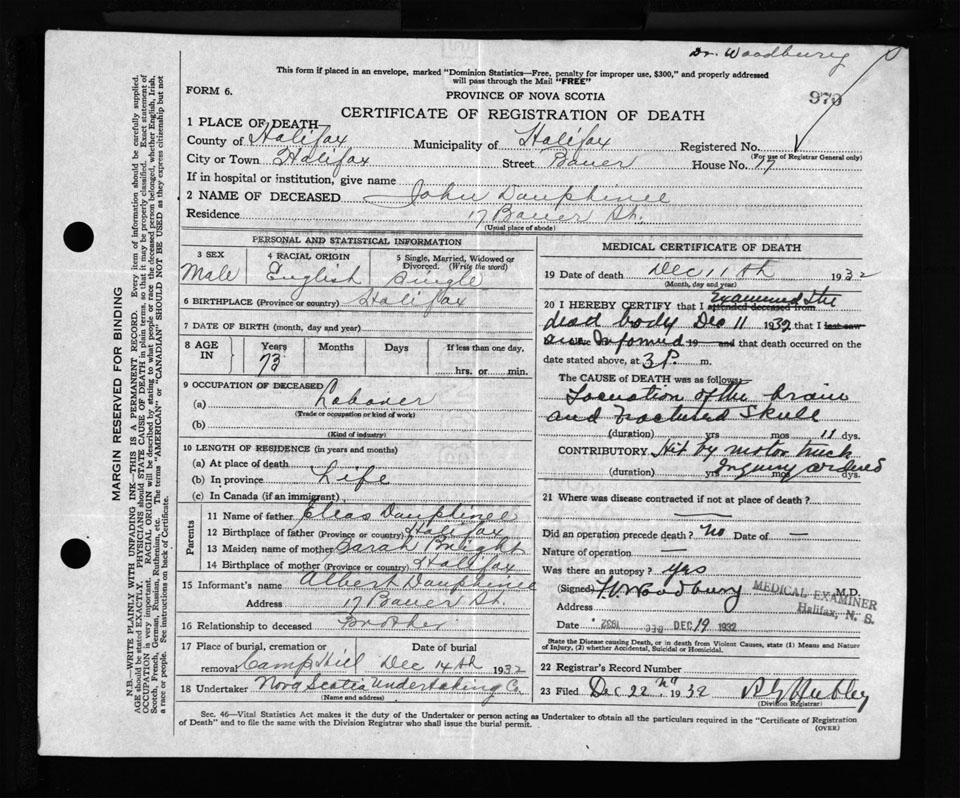 Dr. Woodbury
This form if placed in an envelope, marked "Dominion Statistics—Free, penalty for improper use, $300," and properly addressed
will pass through the Mail "FREE"
970
FORM 6.
PROVINCE OF NOVA SCOTIA
CERTIFICATE OF REGISTRATION OF DEATH
1 PLACE OF DEATH
County of Halifax Municipality of Halifax Registered No.
(For use of Registrar General only)
City or Town Halifax Street Bauer House No. 17
If in hospital or institution, give name
2 NAME OF DECEASED John Dauphinee
Residence 17 Bauer St.
(Usual place of abode)
PERSONAL AND STATISTICAL INFORMATION
3 SEX 4 RACIAL ORIGIN 5 Single, Married, Widowed or Divorced. (Write the word)
Male English Single
6 BIRTHPLACE (Province or country) Halifax
7 DATE OF BIRTH (month, day and year)
8 AGE IN Years Months Days If less than one day,
73 hrs. or min.
9 OCCUPATION OF DECEASED
(a) Laborer
(Trade or occupation or kind of work)
(b)
(Kind of industry)
10 LENGTH OF RESIDENCE (in years and months)
(a) At place of death
(b) In province Life
(c) In Canada (if an immigrant)
Parents
11 Name of father Elias Dauphinee
12 Birthplace of father (Province or country) Halifax
13 Maiden name of mother Sarah Bright
14 Birthplace of mother (Province or country) Halifax
15 Informant's name Albert Dauphinee
Address 17 Bauer St.
16 Relationship to deceased Brother
17 Place of burial, cremation or removal Date of burial
Camp Hill Dec 14th 1932
18 Undertaker Nova Scotia Undertaking Co.
(Name and address)
MEDICAL CERTIFICATE OF DEATH
19 Date of death Dec 11th 1932
(Month, day and year)
20 I HEREBY CERTIFY that I attended deceased from Examined the
dead body Dec 11 1932 that I last saw
Informed 19 and that death occurred on the
date stated above, at 3 P. m.
The CAUSE of DEATH was as follows:
of the brain
and Fractured Skull
(duration) yrs mos 11 dys.
CONTRIBUTORY Hit by motor truck
(duration) yrs mos dys.
Inquiry ordered
21 Where was disease contracted if not at place of death?
Did an operation precede death? No Date of —
Nature of operation —
Was there an autopsy? yes
(Signed) Woodbury M.D.
MEDICAL EXAMINER
Halifax, N. S.
Address
Date DEC 19 1932
State the Disease causing Death, or in death from Violent Causes, state (1) Means and Nature
of Injury, (2) whether Accidental, Suicidal or Homicidal.
22 Registrar's Record Number
23 Filed Dec 22nd 1932
(Division Registrar)
Sec. 46—Vital Statistics Act makes it the duty of the Undertaker or person acting as Undertaker to obtain all the particulars required in the "Certificate of Registration
of Death" and to file the same with the Division Registrar who shall issue the burial permit.
(OVER)
MARGIN RESERVED FOR BINDING
N.B.—WRITE PLAINLY WITH UNFADING INK—THIS IS A PERMANENT RECORD. Every item of information should be carefully supplied.
AGE should be stated EXACTLY. PHYSICIANS should STATE CAUSE OF DEATH in plain terms, so that it may be properly classified. Exact statement of
OCCUPATION is very important. RACIAL ORIGIN will be described by stating to what people or race the deceased person belonged, whether English, Irish,
Scotch, French, German, Russian, Ruthenian, etc. The terms "AMERICAN" or "CANADIAN" SHOULD NOT BE USED as they express citizenship but not
a race or people. See instructions on back of Certificate.